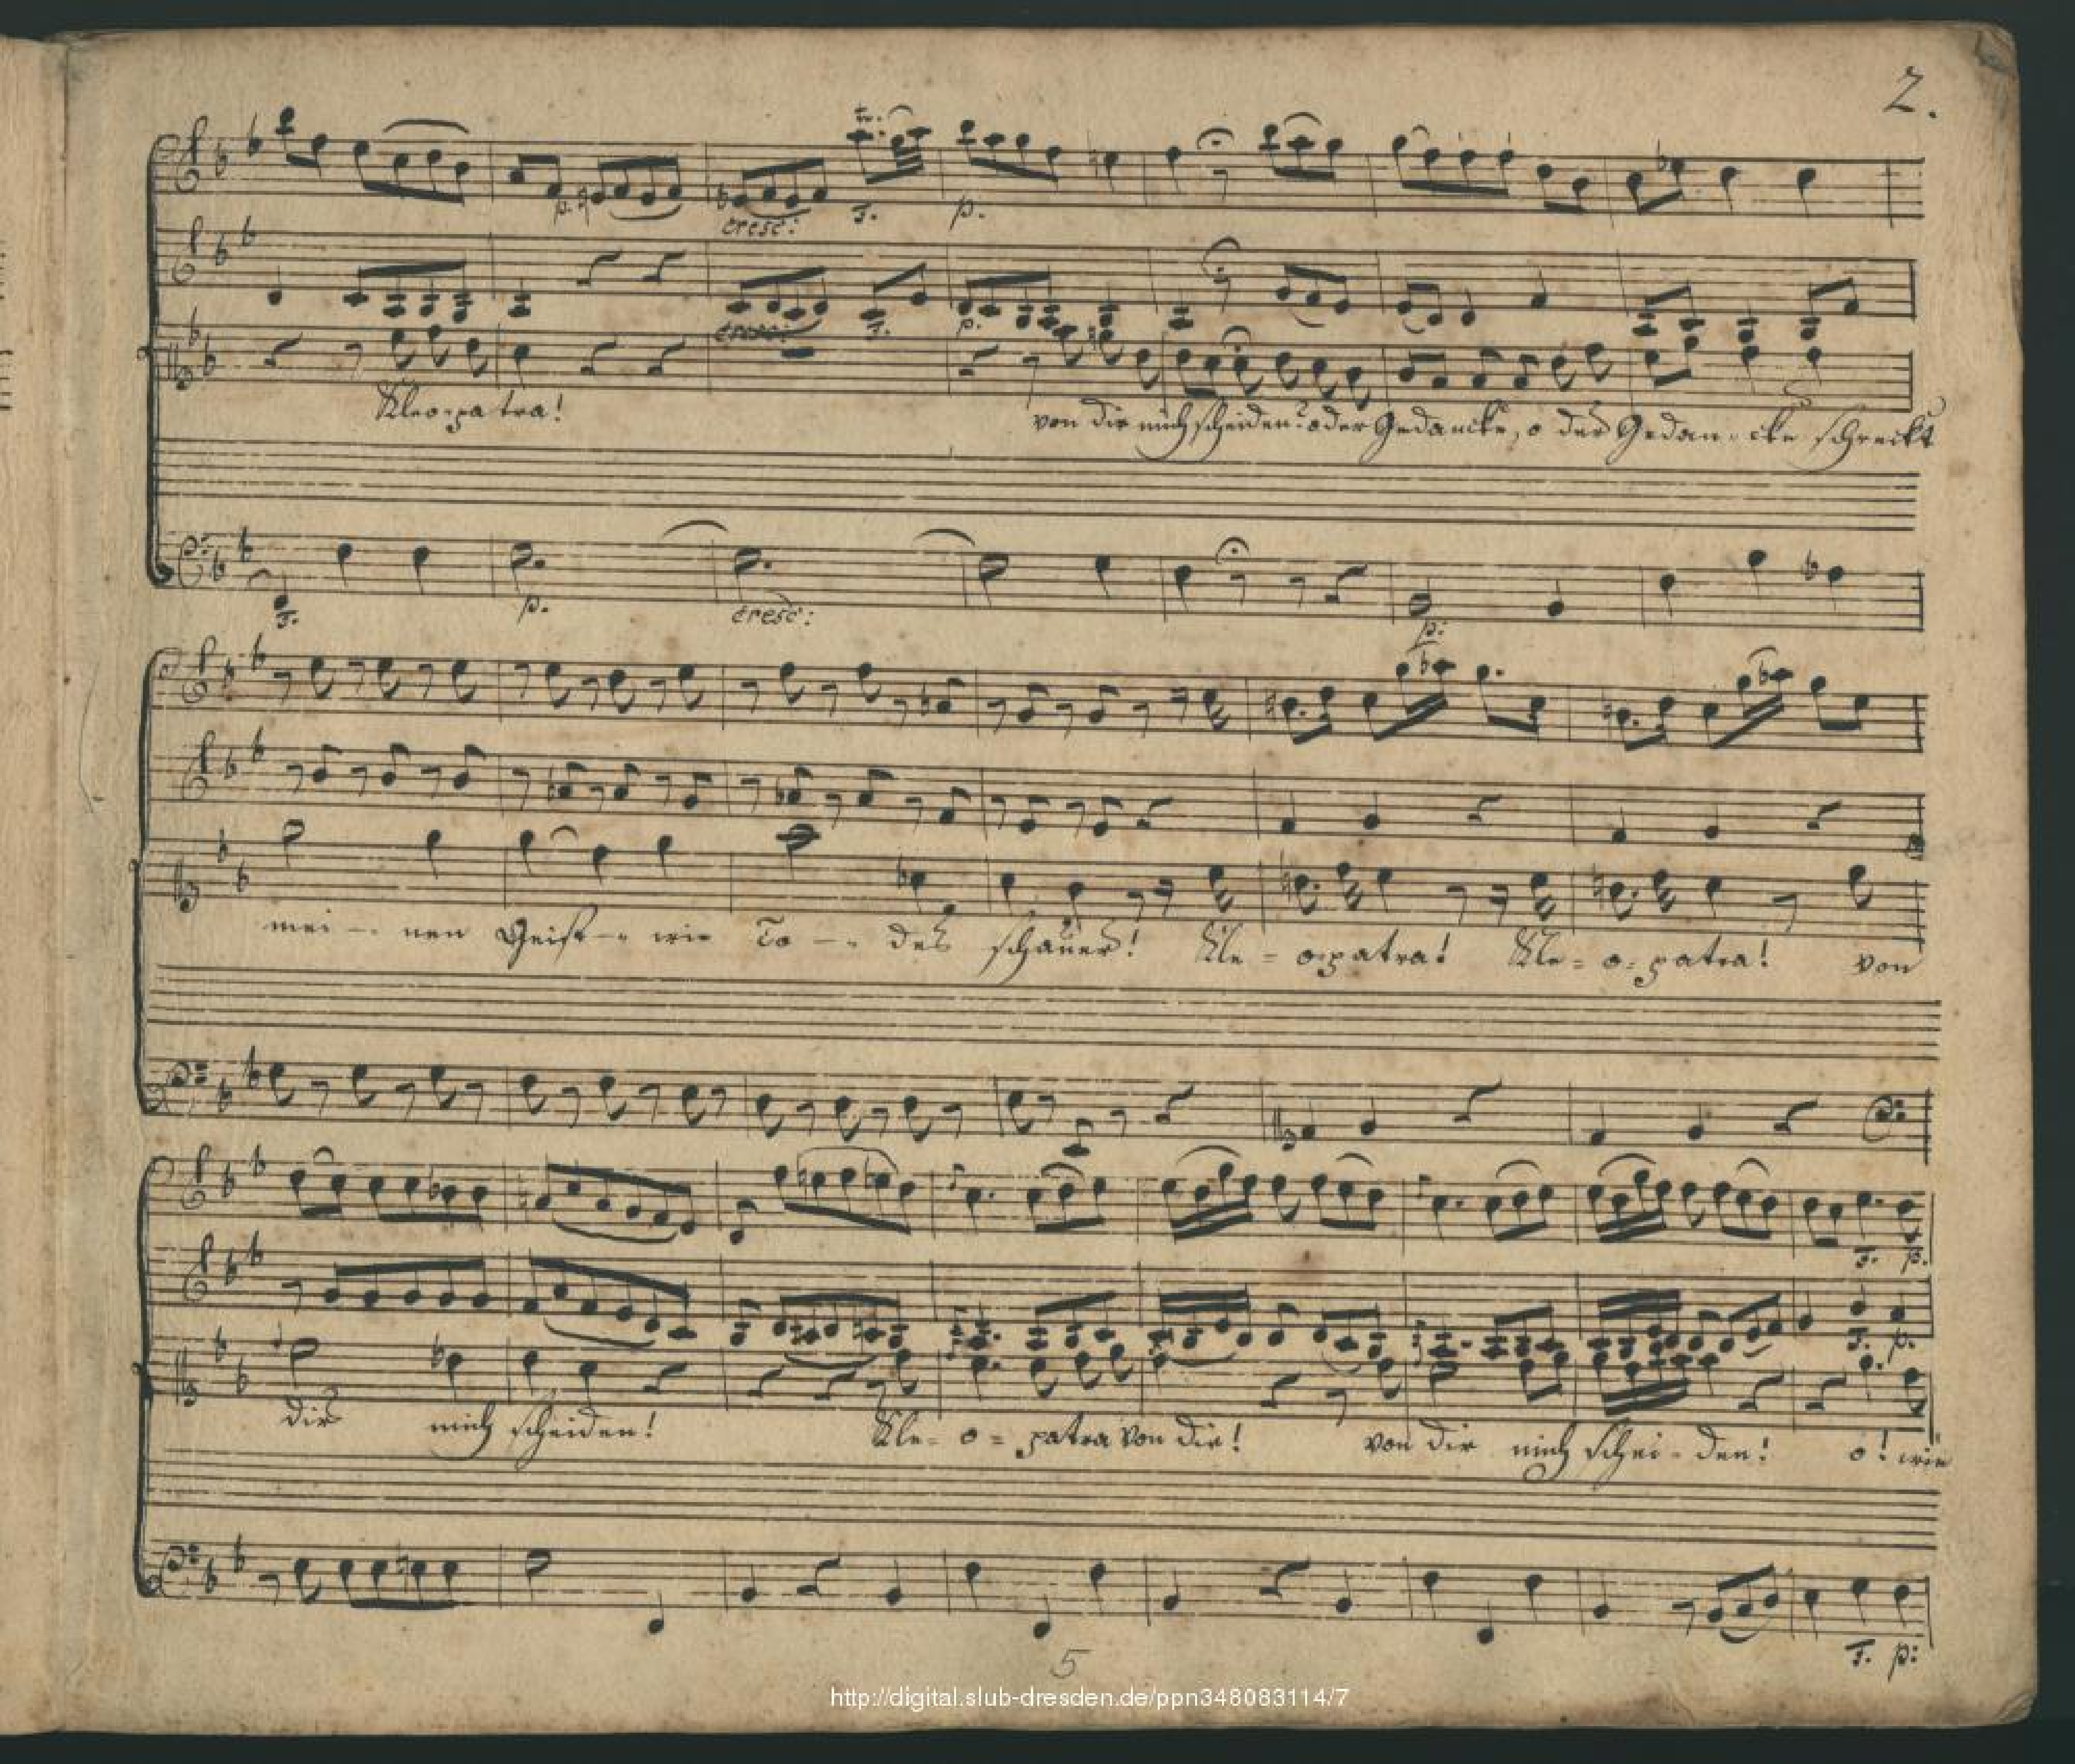 2.
p.
cresc:
tr.
F.
p.
cresc:
F.
p.
Kleo-pa tra! von dir mich scheiden? o der Gedancke, o der Gedan-cke schreckt
F.
p.
cresc:
p:
mei - nen Geist - wie To - des schauer! Kle = o=patra! Kle = o = patra! von
F. p.
F. p.
dir mich scheiden! Kle = o = patra von dir! von dir mich schei = den! o! wie
F. p:
5
http://digital.slub-dresden.de/ppn348083114/7